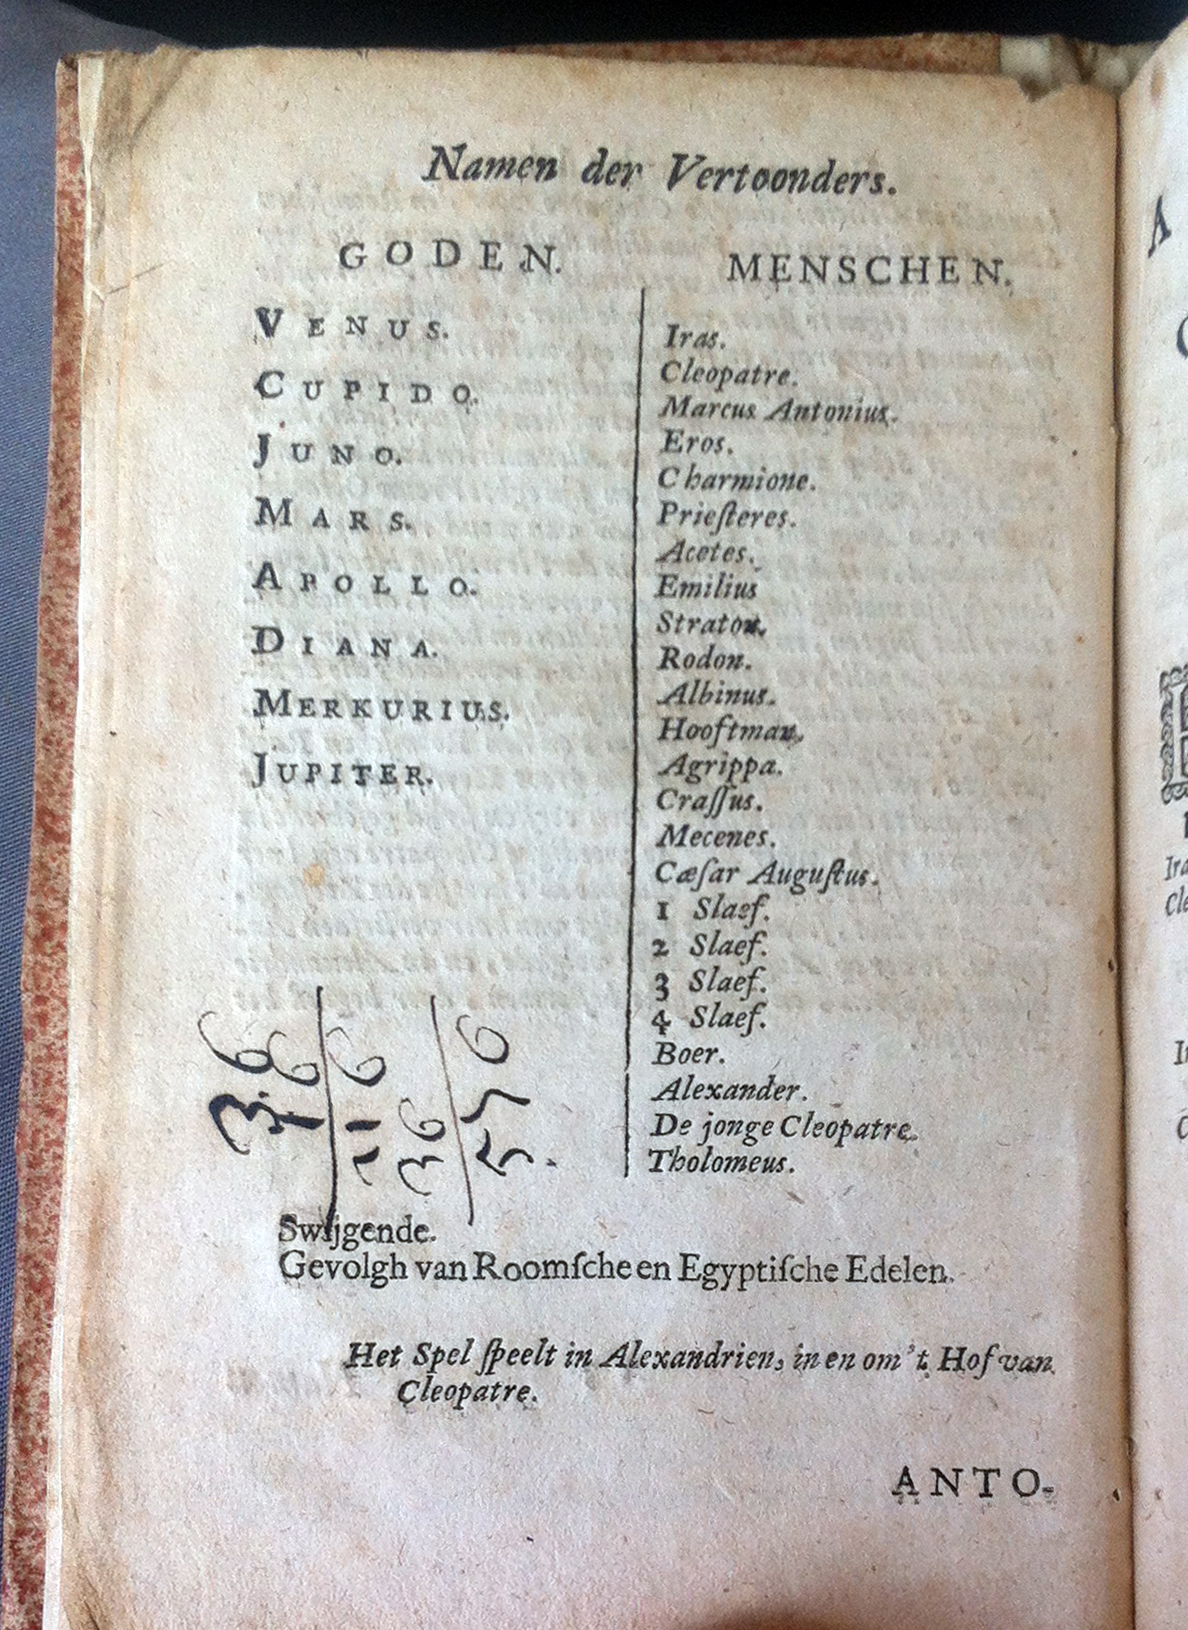 Namen der Vertoonders.
GODEN.
VENUS.
CUPIDO.
JUNO.
MARS.
APOLLO.
DIANA.
MERKURIUS.
JUPITER.
MENSCHEN.
Iras.
Cleopatre.
Marcus Antonius.
Eros.
Charmione.
Prieſteres.
Acetes.
Emilius
Straton.
Rodon.
Albinus.
Hooftman.
Agrippa.
Craſſus.
Mecenes.
Cæſar Auguſtus.
1 Slaef.
2 Slaef.
3 Slaef.
4 Slaef.
Boer.
Alexander.
De jonge Cleopatre.
Tholomeus.
36
16
216
36
576
Swijgende.
Gevolgh van Roomſche en Egyptiſche Edelen.
Het Spel ſpeelt in Alexandrien, in en om 't Hof van
Cleopatre.
ANTO-